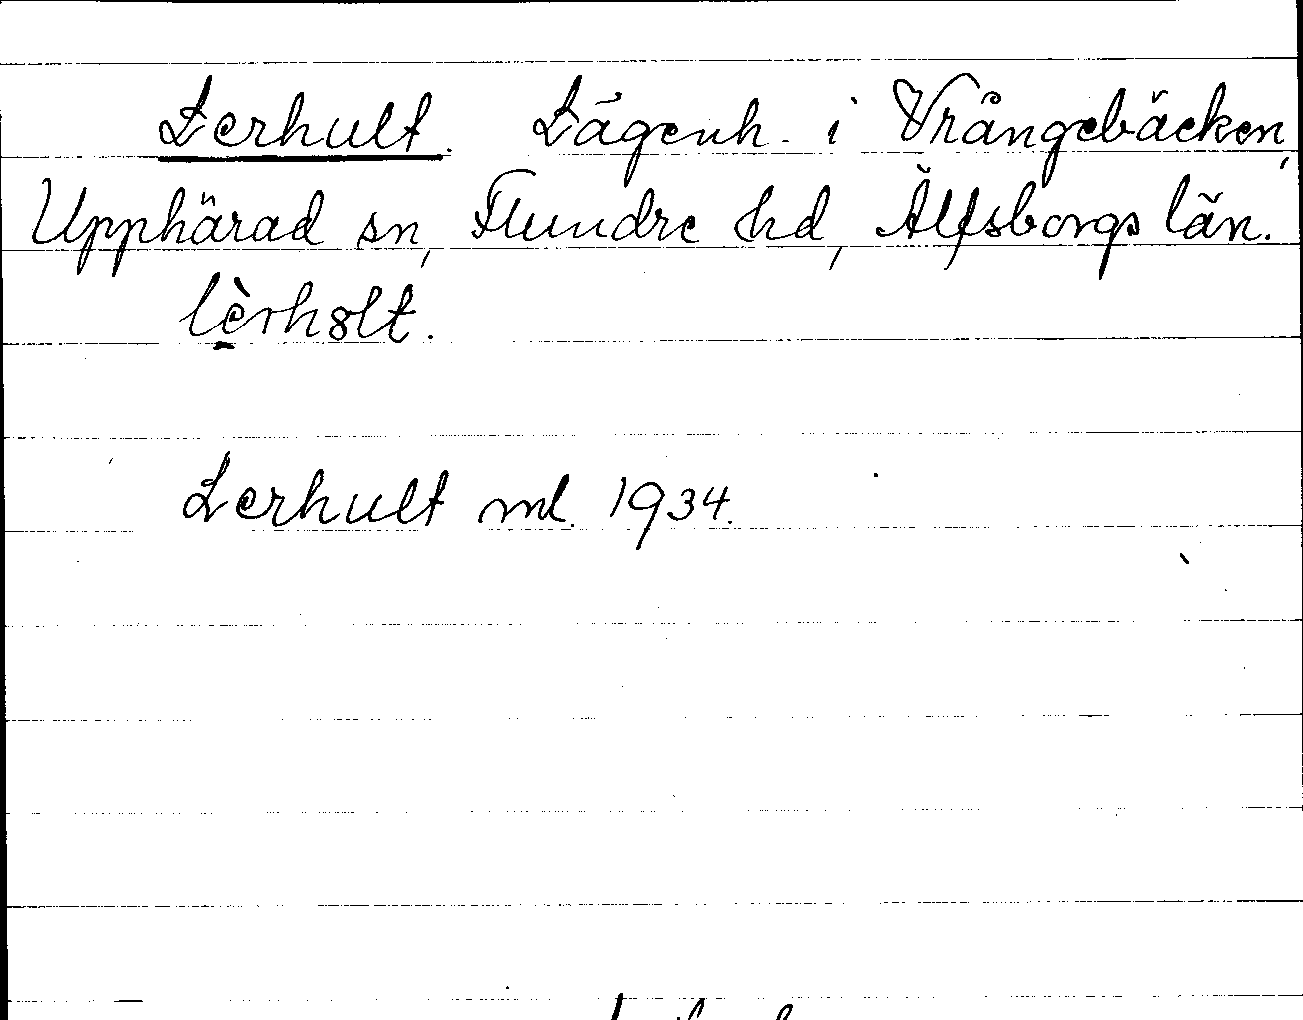 Lerhult. Lägenh. i Vrångebäcken,
Upphärad sn, Flundre hd, Älfsborgs län.
lèrhȣlt.
Lerhult ml. 1934.